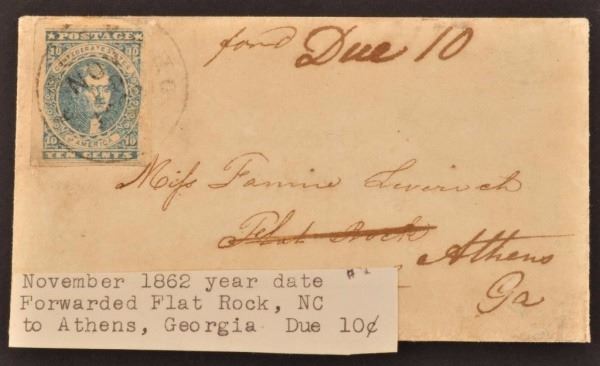 POSTAGE
CONFEDERATE STATES
10 10
NOV
OF AMERICA
10 10
TEN CENTS
ford Due 10
Miss Fannie Leverich
Flat Rock
Athens
Ga
November 1862 year date
Forwarded Flat Rock, NC
to Athens, Georgia Due 10¢